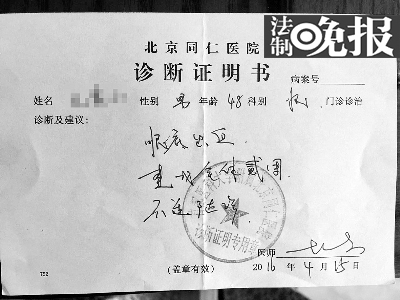 法制晚报
北京同仁医院
诊断证明书
病案号
姓名 性别 男 年龄 48 科别 眼 门诊诊治
诊断及建议:
眼底出血
建议全休贰周
不适
诊断证明专用章
医师
(盖章有效) 2016 年 4 月 15 日
752